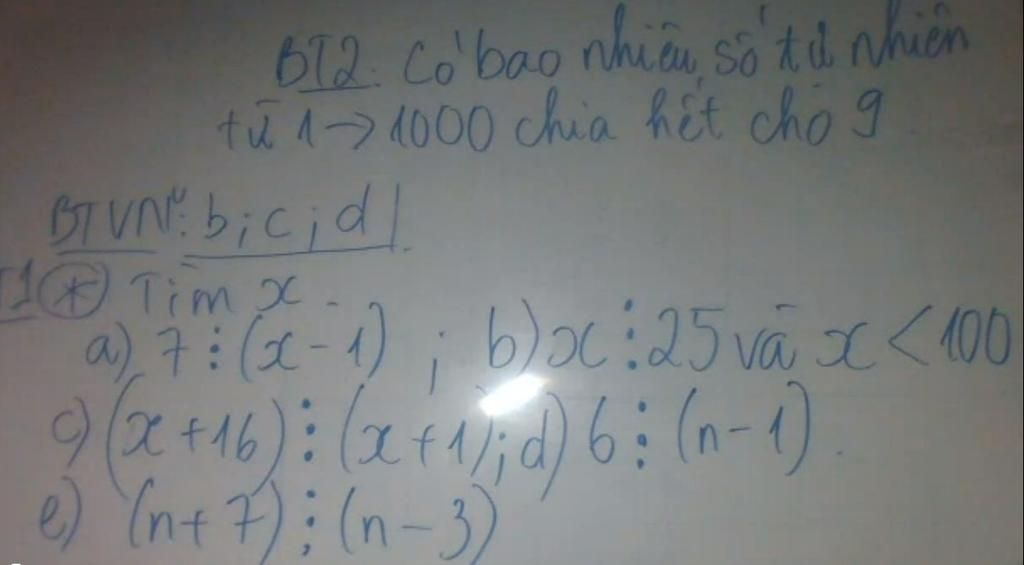 BT2: Có bao nhiêu số tự nhiên
từ 1 → 1000 chia hết cho 9.
BTVN: b; c; d
1 * Tìm x.
a) 7 ⋮ (x - 1) ; b) x ⋮ 25 và x < 100
c) (x + 16) ⋮ (x + 1); d) 6 ⋮ (n - 1).
e) (n + 7) ⋮ (n - 3)